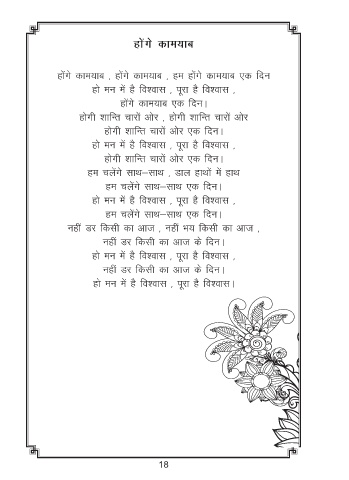 होंगे कामयाब
होंगे कामयाब , होंगे कामयाब , हम होंगे कामयाब एक दिन
हो मन में है विश्वास , पूरा है विश्वास ,
होंगे कामयाब एक दिन।
होगी शान्ति चारों ओर , होगी शान्ति चारों ओर
होगी शान्ति चारों ओर एक दिन।
हो मन में है विश्वास , पूरा है विश्वास ,
होगी शान्ति चारों ओर एक दिन।
हम चलेंगे साथ–साथ , डाल हाथों में हाथ
हम चलेंगे साथ–साथ एक दिन।
हो मन में है विश्वास , पूरा है विश्वास ,
हम चलेंगे साथ–साथ एक दिन।
नहीं डर किसी का आज , नहीं भय किसी का आज ,
नहीं डर किसी का आज के दिन।
हो मन में है विश्वास , पूरा है विश्वास ,
नहीं डर किसी का आज के दिन।
हो मन में है विश्वास , पूरा है विश्वास।
18